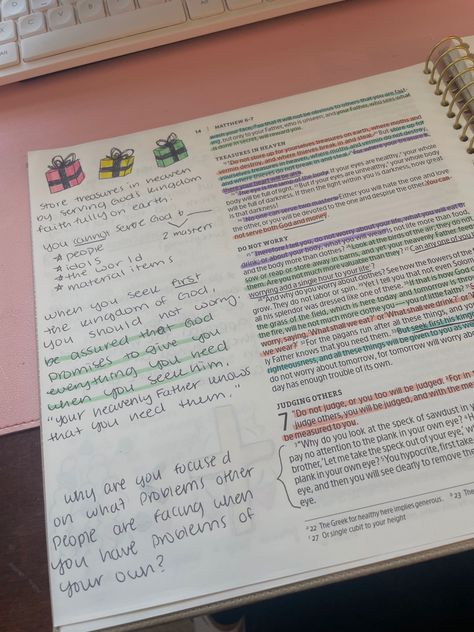 Store treasures in heaven
by serving God's kingdom
faithfully on earth.
you cannot serve God &
2 masters
people
idols
the world
material items
when you seek first
the kingdom of God,
you should not worry.
be assured that God
promises to give you
everything you need
when you seek him.
"your heavenly Father knows
that you need them."
why are you focused
on what problems other
people are facing when
you have problems of
your own?
14 MATTHEW 6-7
wash your face, so that it will not be obvious to others that you are fast-
but only to your Father, who is unseen; and your Father, who sees what
is done in secret, will reward you.
TREASURES IN HEAVEN
"Do not store up for yourselves treasures on earth, where moths and
vermin destroy, and where thieves break in and steal. But store up for
yourselves treasures in heaven, where moths and vermin do not destroy,
and where thieves do not break in and steal. For where your treasure
your heart will be also.
"The eye is the lamp of the body. If your eyes are healthy, your whole
body will be full of light. But if your eyes are unhealthy, your whole body
will be full of darkness. If then the light within you is darkness, how great
is that darkness!
"No one can serve two masters. Either you will hate the one and love
the other, or you will be devoted to the one and despise the other. You can-
not serve both God and money.
DO NOT WORRY
"Therefore I tell you, do not worry about your life, what you will eat or
drink; or about your body, what you will wear. Is not life more than food,
and the body more than clothes? Look at the birds of the air; they do not
sow or reap or store away in barns, and yet your heavenly Father feeds
them. Are you not much more valuable than they? Can any one of you by
worrying add a single hour to your life?
"And why do you worry about clothes? See how the flowers of the
grow. They do not labor or spin. Yet I tell you that not even Solomon
all his splendor was dressed like one of these. If that is how God
the grass of the field, which is here today and tomorrow is
fire, will he not much more clothe you—you of little faith?
worry, saying, 'What shall we eat?' or 'What shall we drink?' or
we wear?' For the pagans run after all these things, and
ly Father knows that you need them. But seek first his kingdom
righteousness, and all these things will be given to you as well.
do not worry about tomorrow, for tomorrow will worry about
day has enough trouble of its own.
JUDGING OTHERS
7 "Do not judge, or you too will be judged. For in
judge others, you will be judged, and with the
be measured to you.
"Why do you look at the speck of sawdust in
pay no attention to the plank in your own eye?
brother, 'Let me take the speck out of your eye,'
plank in your own eye? You hypocrite, first take
eye, and then you will see clearly to remove the
eye.
22 The Greek for healthy here implies generous.
27 Or single cubit to your height